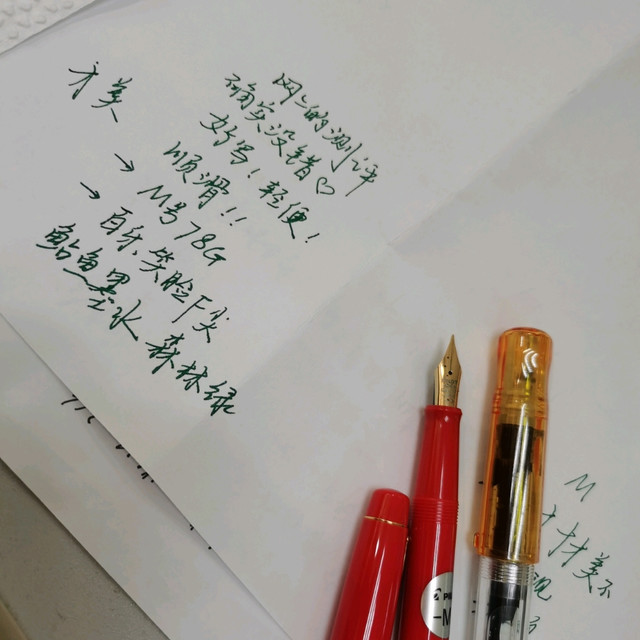 才美
网上的测评
确实没错♡
好写！轻便！
顺滑!!
→ M号78G
→ 百乐、笑脸F尖
鲇鱼墨水 森林绿
M
才美不
-M